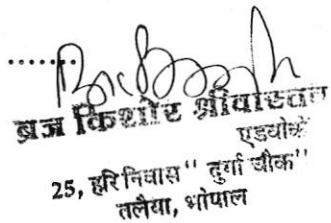 ब्रज किशोर श्रीवास्तव
एडवोके
25, हरि निवास " दुर्गा चौक"
तलैया, भोपाल